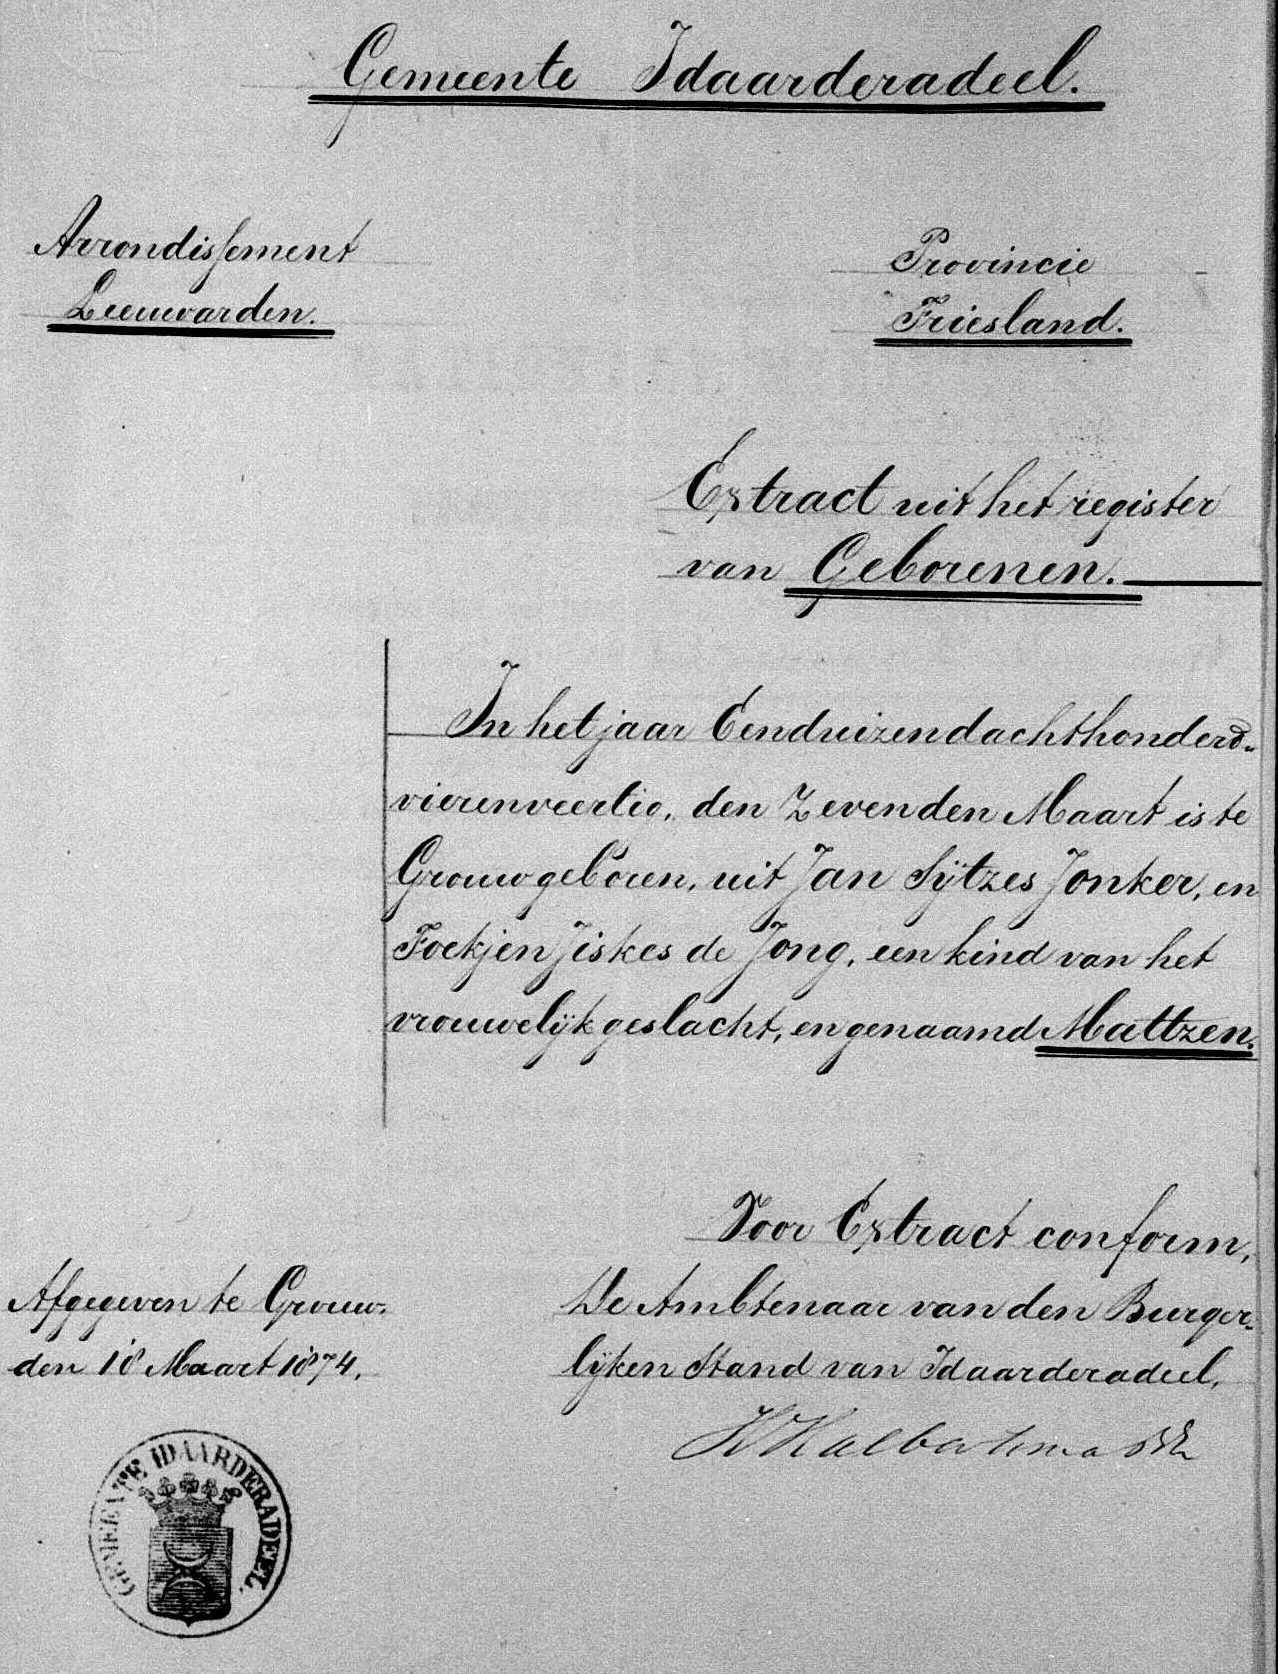 Gemeente Idaarderadeel.
Arrondissement
Leeuwarden.
Provincie
Friesland.
Extract uit het register
van Geborenen.
In het jaar Eenduizendachthonderd-
vierenveertig, den Zevenden Maart is te
Grouw geboren, uit Jan Sijtzes Jonker, en
Foekjen Jiskes de Jong, een kind van het
vrouwelijk geslacht, en genaamd Mattzen.
Voor Extract conform,
De Ambtenaar van den Burger-
lijken Stand van Idaarderadeel,
Afgegeven te Grouw
den 18 Maart 1874.
GEMEENTE IDAARDERADEEL.